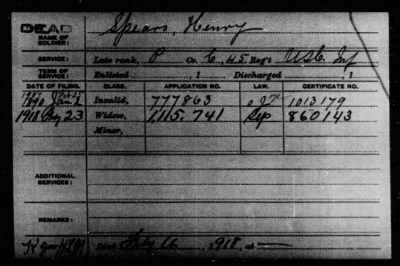 DEAD
NAME OF SOLDIER: Spears, Henry
SERVICE: Late rank, P Co. C, 45 Reg't U.S.C. Inf
TERM OF SERVICE: Enlisted , 1 Discharged , 1
DATE OF FILING. CLASS. APPLICATION NO. LAW. CERTIFICATE NO.
1890 Jan 2 Invalid, 777863 1013179
1918 Aug 23 Widow, 1,115,741 Sep 860143
Minor,
ADDITIONAL SERVICES:
REMARKS:
Died 16, 1918, at